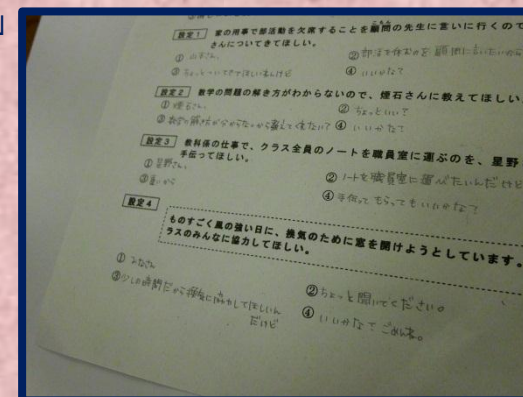 」
設定1 家の用事で部活動を欠席することを顧問の先生に言いに行くので
さんについてきてほしい。
① 山下さん。
② 部活を休むのを顧問に言いたいから
③ ちょっとついてきてほしいんだけど
④ いいかな?
設定2 数学の問題の解き方がわからないので、煙石さんに教えてほしい
① 煙石さん。
② ちょっといい?
③ 数学の解き方が分からないから教えてくれない?
④ いいかな?
設定3 教科係の仕事で、クラス全員のノートを職員室に運ぶのを、星野
手伝ってほしい。
① 星野さん。
② ノートを職員室に運びたいんだけど
③ 重いから
④ 手伝ってもらってもいいかな?
設定4
ものすごく風の強い日に、換気のために窓を開けようとしています。
ラスのみんなに協力してほしい。
① みなさん
② ちょっと聞いてください。
③ 少しの時間だから換気に協力してほしいん
だけど
④ いいかな? ごめんね。